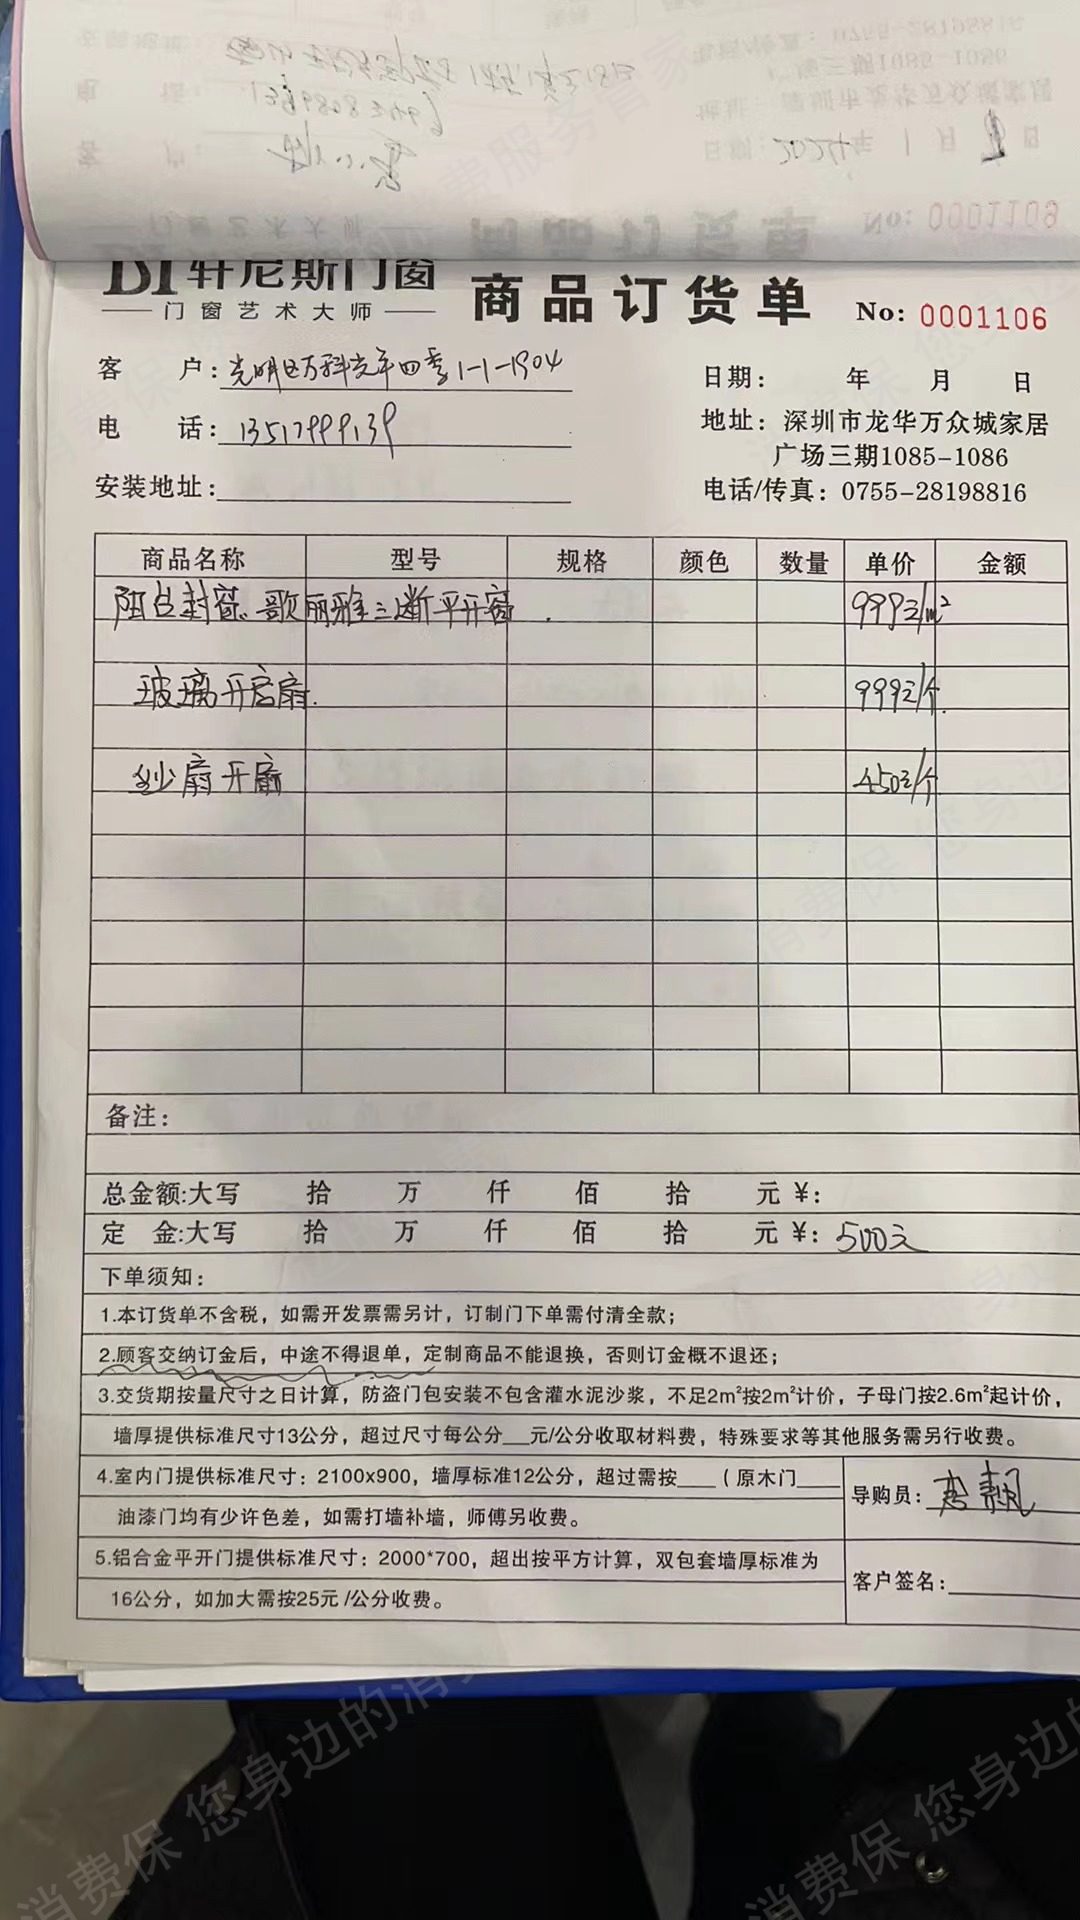 日期: 2024年 1月 日
No: 0001109
轩尼斯门窗
门窗艺术大师
商品订货单
No: 0001106
客 户: 光明区万科光年四季1-1-1904
日期: 年 月 日
电 话: 13517999139
地址: 深圳市龙华万众城家居
广场三期1085-1086
安装地址:
电话/传真: 0755-28198816
商品名称 型号 规格 颜色 数量 单价 金额
阳台封窗. 歌丽雅三断平开窗 999元/m²
玻璃开启扇. 999元/个
纱扇开扇 450元/个
备注:
总金额:大写 拾 万 仟 佰 拾 元 ¥:
定 金:大写 拾 万 仟 佰 拾 元 ¥: 500元
下单须知:
1.本订货单不含税，如需开发票需另计，订制门下单需付清全款;
2.顾客交纳订金后，中途不得退单，定制商品不能退换，否则订金概不退还;
3.交货期按量尺寸之日计算，防盗门包安装不包含灌水泥沙浆，不足2m²按2m²计价，子母门按2.6m²起计价，
墙厚提供标准尺寸13公分，超过尺寸每公分__元/公分收取材料费，特殊要求等其他服务需另行收费。
4.室内门提供标准尺寸: 2100x900，墙厚标准12公分，超过需按___ ( 原木门___
油漆门均有少许色差，如需打墙补墙，师傅另收费。
导购员:
5.铝合金平开门提供标准尺寸: 2000*700，超出按平方计算，双包套墙厚标准为
16公分，如加大需按25元 /公分收费。
客户签名:
消费保 您身边的消费服务管家
消费保 您身边的